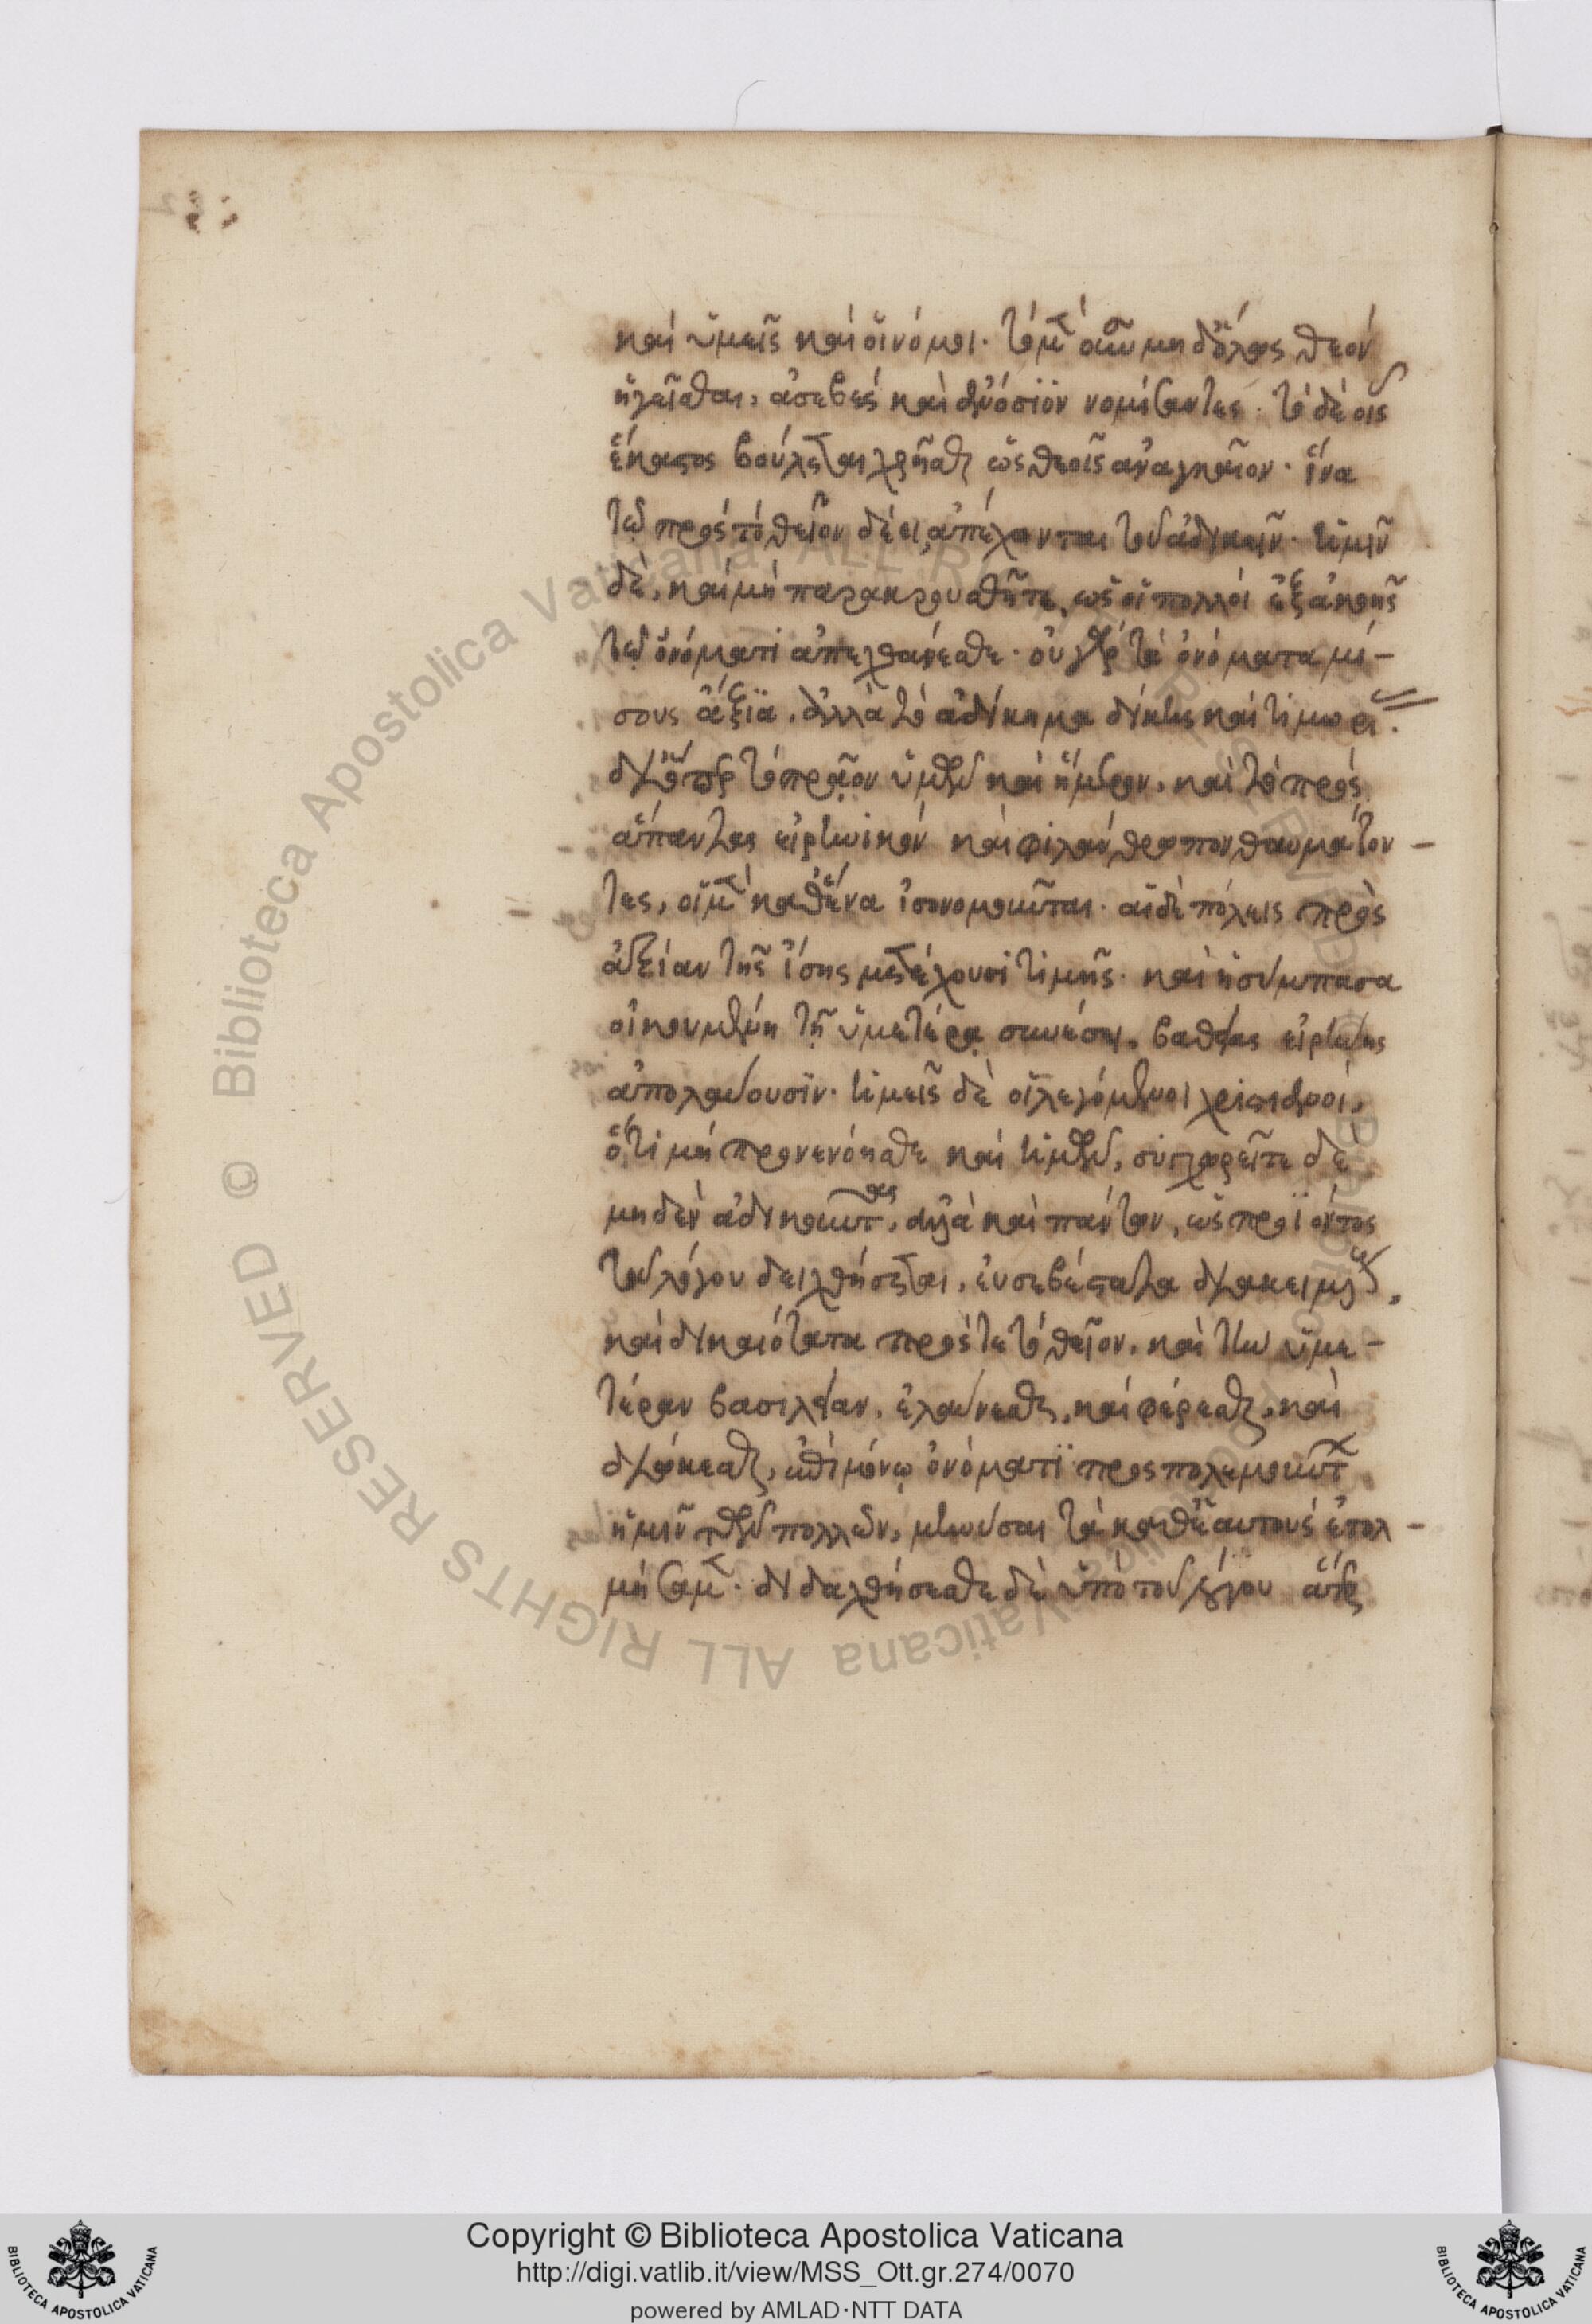 καὶ ὑμεῖς καὶ οἱ νόμοι. τὸ μὲν οὖν μηδ' ὅλως θεὸν
ἡγεῖσθαι, ἀσεβὲς καὶ ἀνόσιον νομίσαντες. τὸ δὲ οἷς
ἕκαστος βούλεται χρῆσθαι ὡς θεοῖς ἀναγκαῖον. ἵνα
τῷ πρὸς τὸ θεῖον δέει, ἀπέχωνται τοῦ ἀδικεῖν. ὑμῖν
δὲ, καὶ μὴ παρακρουσθῆτε, ὡς οἱ πολλοὶ ἐξ ἀκοῆς
τῷ ὀνόματι ἀπεχθάνεσθε. οὐ γὰρ τὰ ὀνόματα μί-
σους ἄξια. ἀλλὰ τὸ ἀδίκημα δίκης καὶ τιμωρί.
διόπερ τὸ πρᾷον ὑμῶν καὶ ἥμερον. καὶ τὸ πρὸς
ἅπαντας εἰρηνικὸν καὶ φιλάνθρωπον θαυμάζον-
τες, οἱ μὲν καθένα ἰσονομοῦνται. αἱ δὲ πόλεις πρὸς
ἀξίαν τῆς ἴσης μετέχουσι τιμῆς. καὶ ἡ σύμπασα
οἰκουμένη τῇ ὑμετέρᾳ συνέσει, βαθείας εἰρήνης
ἀπολαύουσιν. ἡμεῖς δὲ οἱ λεγόμενοι χριστιανοὶ,
ὅτι μὴ προνενόησθε καὶ ἡμῶν, συγχωρεῖτε δὲ
μηδὲν ἀδικοῦντας, ἀλλὰ καὶ πάντων, ὡς προϊόντος
τοῦ λόγου δειχθήσεται, εὐσεβέστατα διακειμένους,
καὶ δικαιότατα πρός τε τὸ θεῖον, καὶ τὴν ὑμε-
τέραν βασιλείαν, ἐλαύνεσθαι, καὶ φέρεσθαι, καὶ
διώκεσθαι, ἐπὶ μόνῳ ὀνόματι προσπολεμούντων
ἡμῖν τῶν πολλῶν, μηνύσαι τὰ καθ' ἑαυτοὺς ἐτολ-
μήσαμεν. διδαχθήσεσθε δὲ ὑπὸ τοῦ λόγου ἅπερ
Copyright © Biblioteca Apostolica Vaticana
http://digi.vatlib.it/view/MSS_Ott.gr.274/0070
powered by AMLAD·NTT DATA